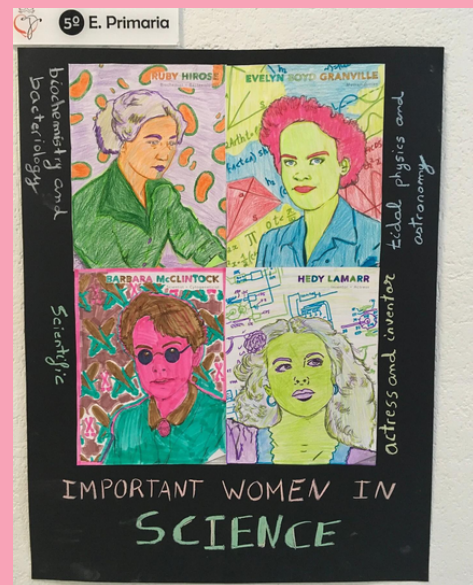 5º E. Primaria
biochemistry and
bacteriology
RUBY HIROSE
EVELYN BOYD GRANVILLE
tidal physics and
astronomy
Scientific
BARBARA McCLINTOCK
HEDY LAMARR
actress and inventor
IMPORTANT WOMEN IN
SCIENCE